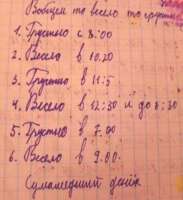 Вообщем то весело то грустно
1. Грустно с 8:00
2. Весело в 10.20
3. Грустно в 11:5
4. Весело в 12:30 и до 6:30
5. Грустно в 7.00
6. Весело в 9.00.
Сумасшедший денёк